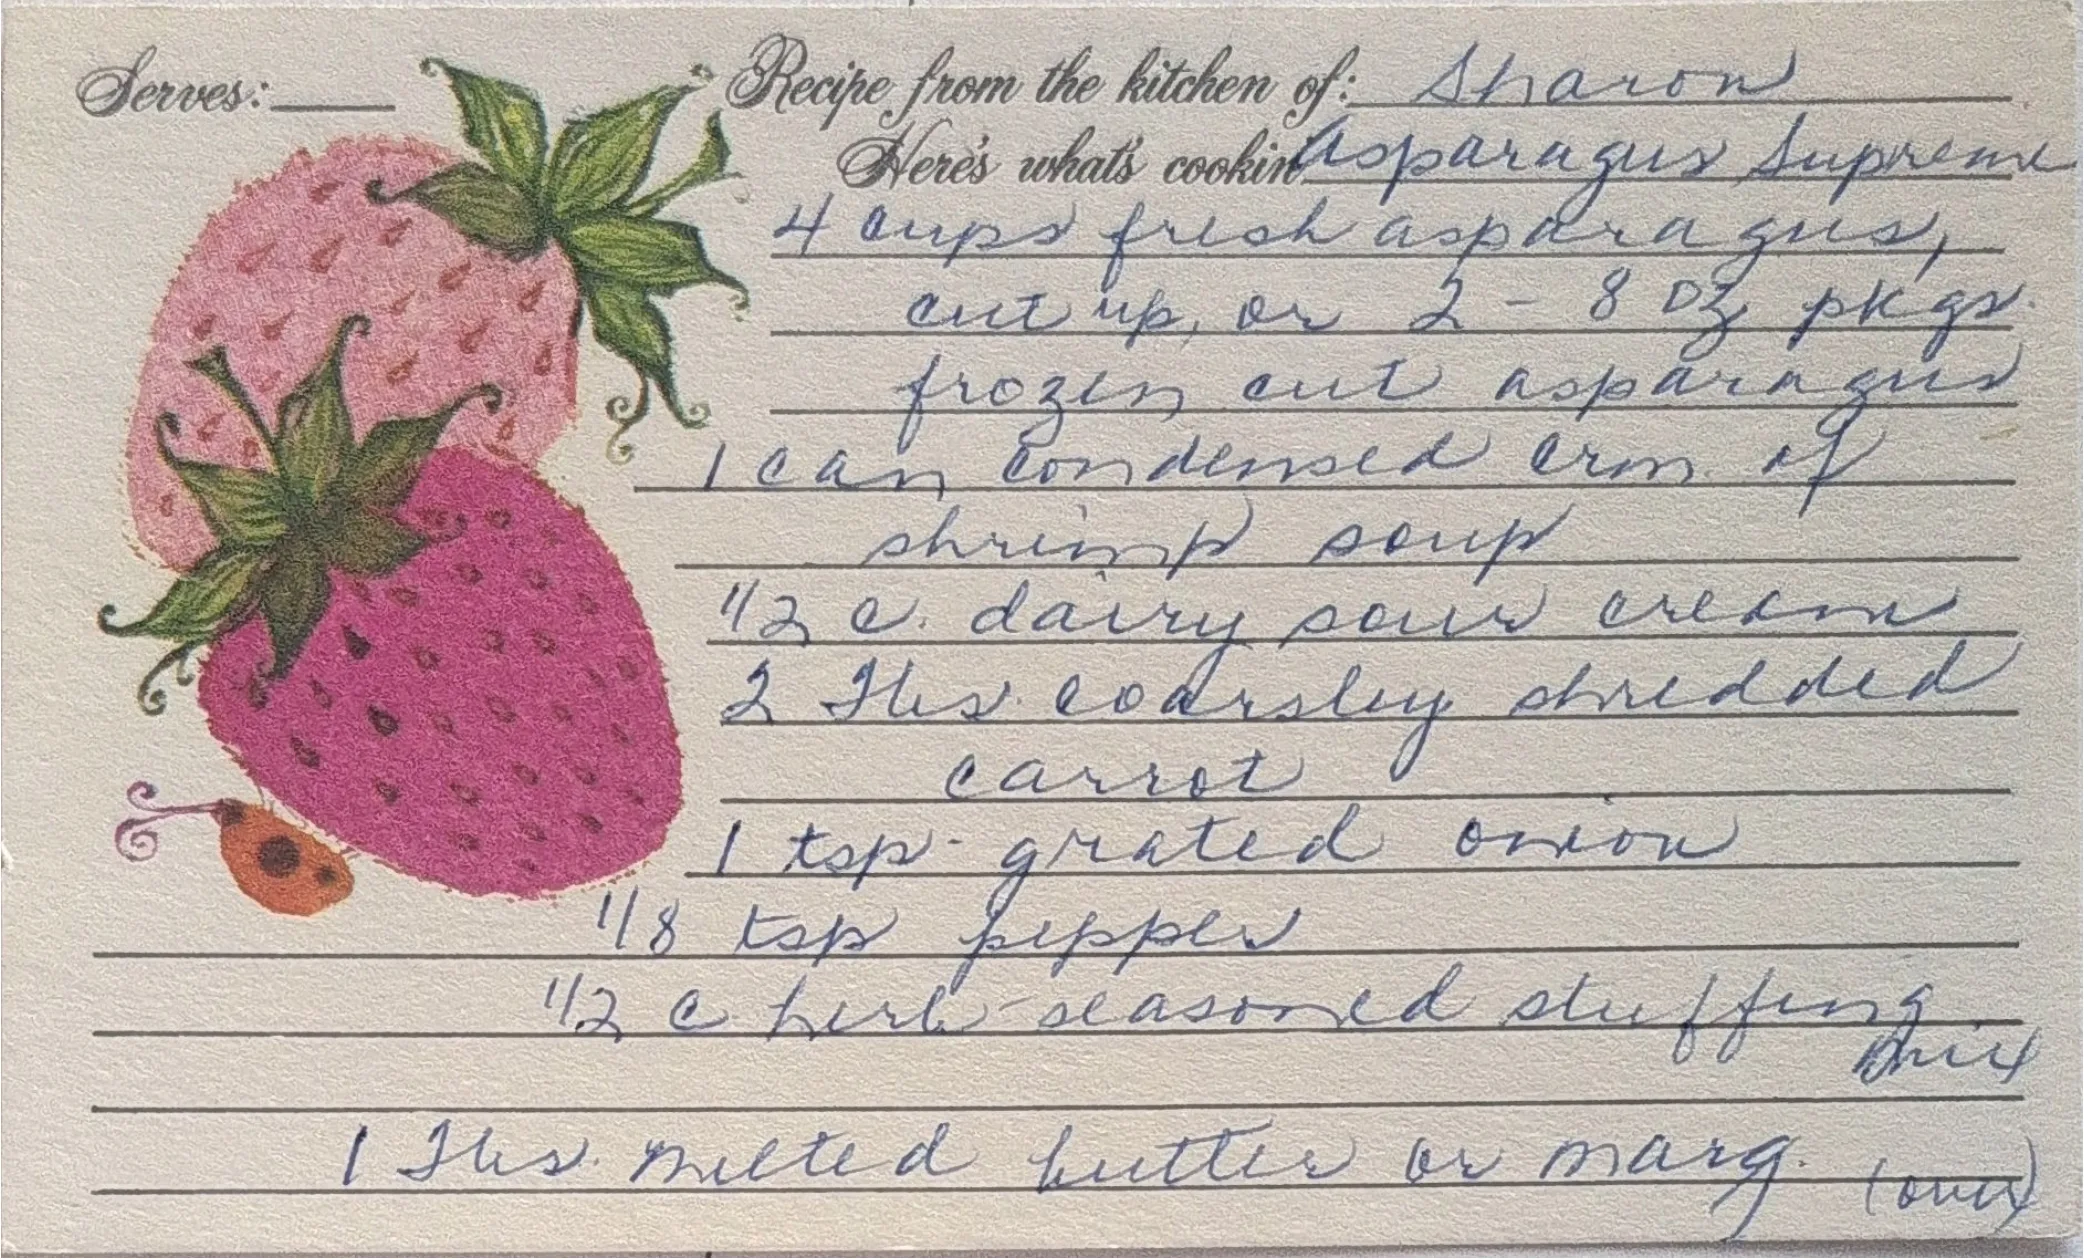 Serves: Recipe from the kitchen of: Sharon
Here's what's cookin' Asparagus Supreme
4 cups fresh asparagus,
cut up, or 2 - 8 oz pkgs.
frozen cut asparagus
1 can condensed crm. of
shrimp soup
1/2 c. dairy sour cream
2 Tbs. coarsley shredded
carrot
1 tsp. grated onion
1/8 tsp pepper
1/2 c herb-seasoned stuffing
mix
1 Tbs. melted butter or marg.
(over)